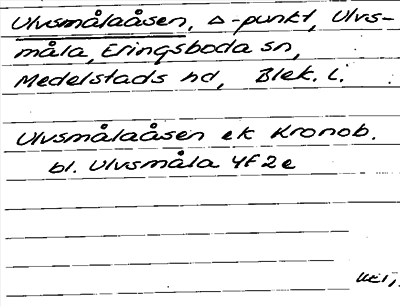 Ulvsmålaåsen, Δ-punkt, Ulvs-
måla, Eringsboda sn,
Medelstads hd, Blek. l.
Ulvsmålaåsen ek Kronob.
bl. Ulvsmåla 4F2e